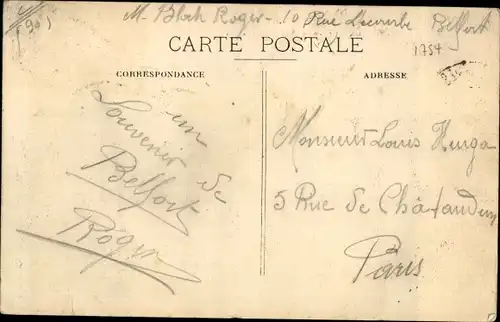 (90)
M. Bloch Roger - 10 Rue Lecourbe Belfort
CARTE POSTALE
1754
CORRESPONDANCE
ADRESSE
un
Souvenir de
Belfort
Roger
Monsieur Louis
5 Rue de
Paris